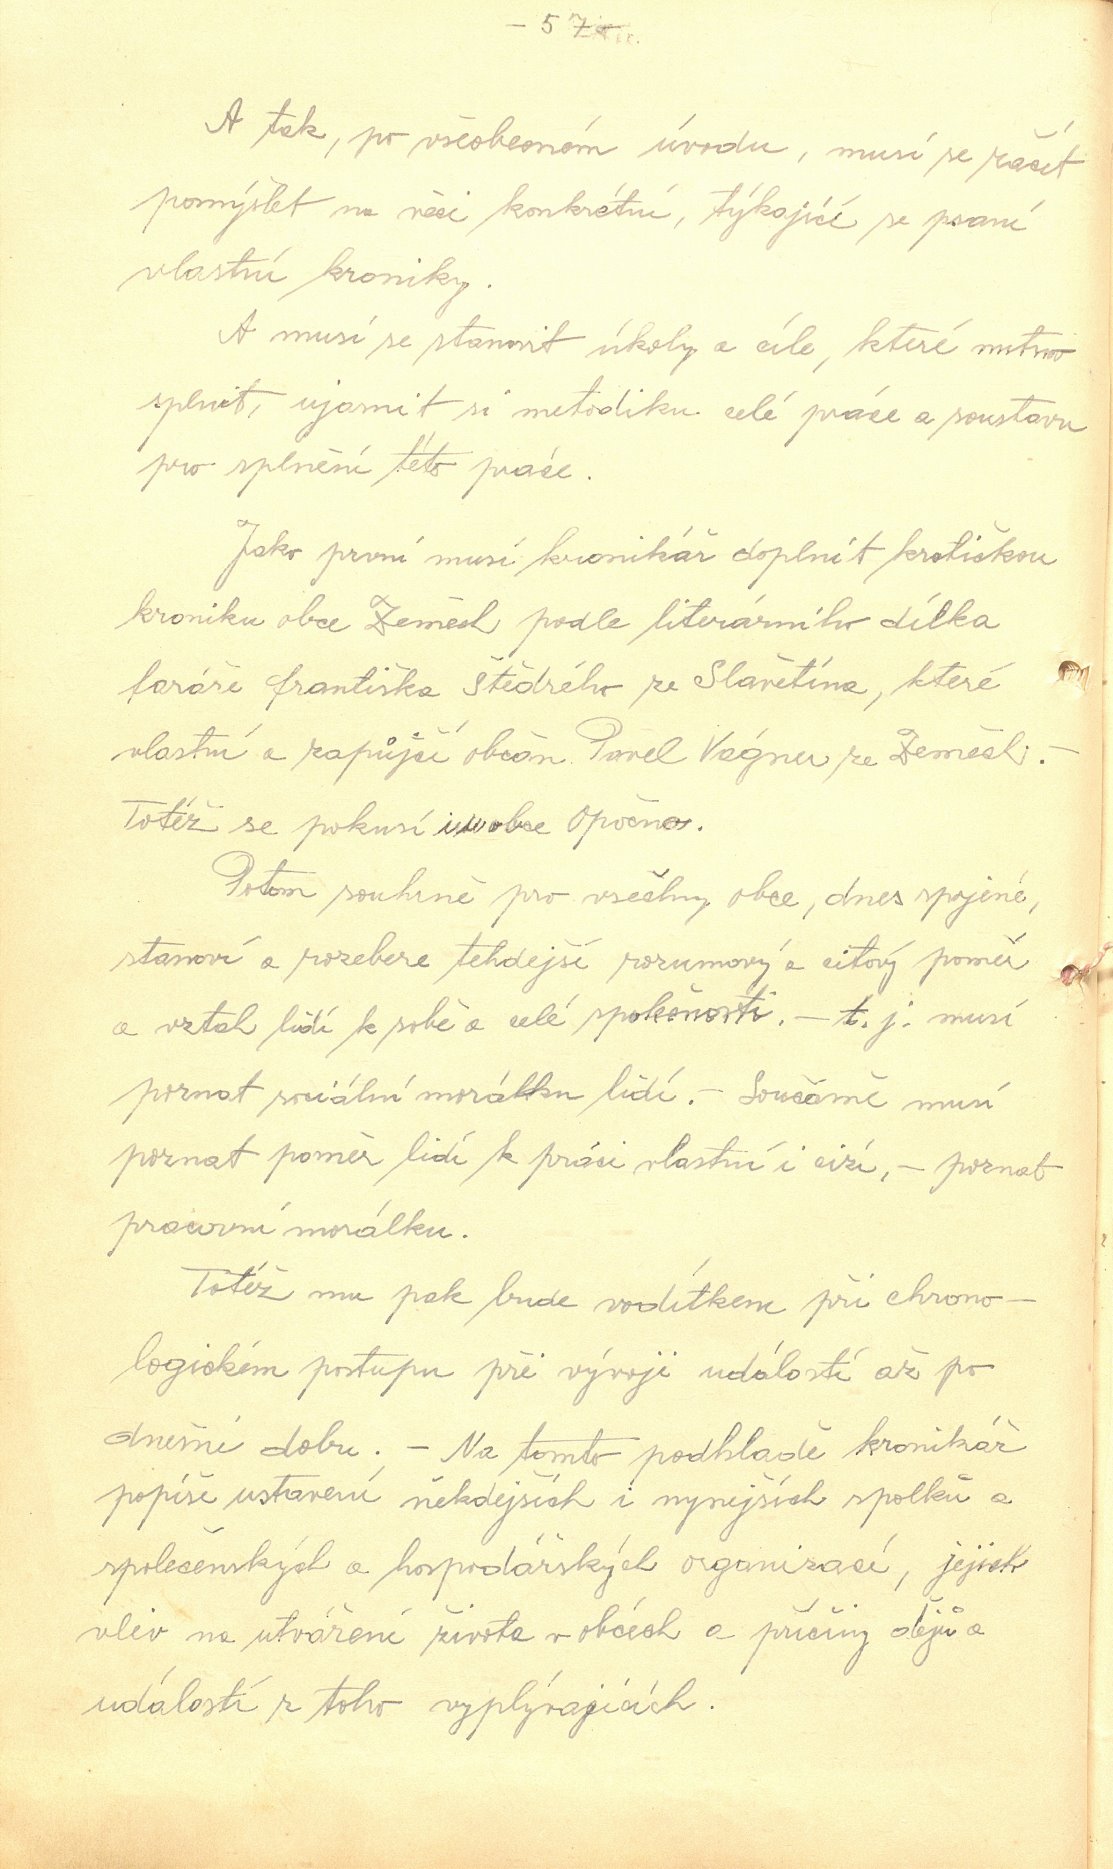 - 57 -
A tak, po všeobecném úvodu, musí se začít
pomýšlet na věci konkrétní, týkající se psaní
vlastní kroniky.
A musí se stanovit úkoly a cíle, které nutno
splnit, ujasnit si metodiku celé práce a soustavu
pro splnění této práce.
Jako první musí kronikář doplnit kratičkou
kroniku obce Zeměch podle literárního dílka
faráře Františka Štědrého ze Slavětína, které
vlastní a zapůjčí občan Pavel Vágner ze Zeměch. -
Totéž se pokusí u obce Opočna.
Potom souhrně pro všechny obce, dnes spojené,
stanoví a rozebere tehdejší rozumový a citový poměr
a vztah lidí k sobě a celé společnosti. - t. j. musí
poznat sociální morálku lidí. - Součásně musí
poznat poměr lidí k práci vlastní i cizí, - poznat
pracovní morálku.
Totéž mu pak bude vodítkem při chrono-
logickém postupu při vývoji událostí až po
dnešní dobu. - Na tomto podkladě kronikář
popíše ustavení někdejších i nynějších spolků a
společenských a hospodářských organizací, jejich
vliv na utváření života v obcích a příčiny dějů a
událostí z toho vyplývajících.